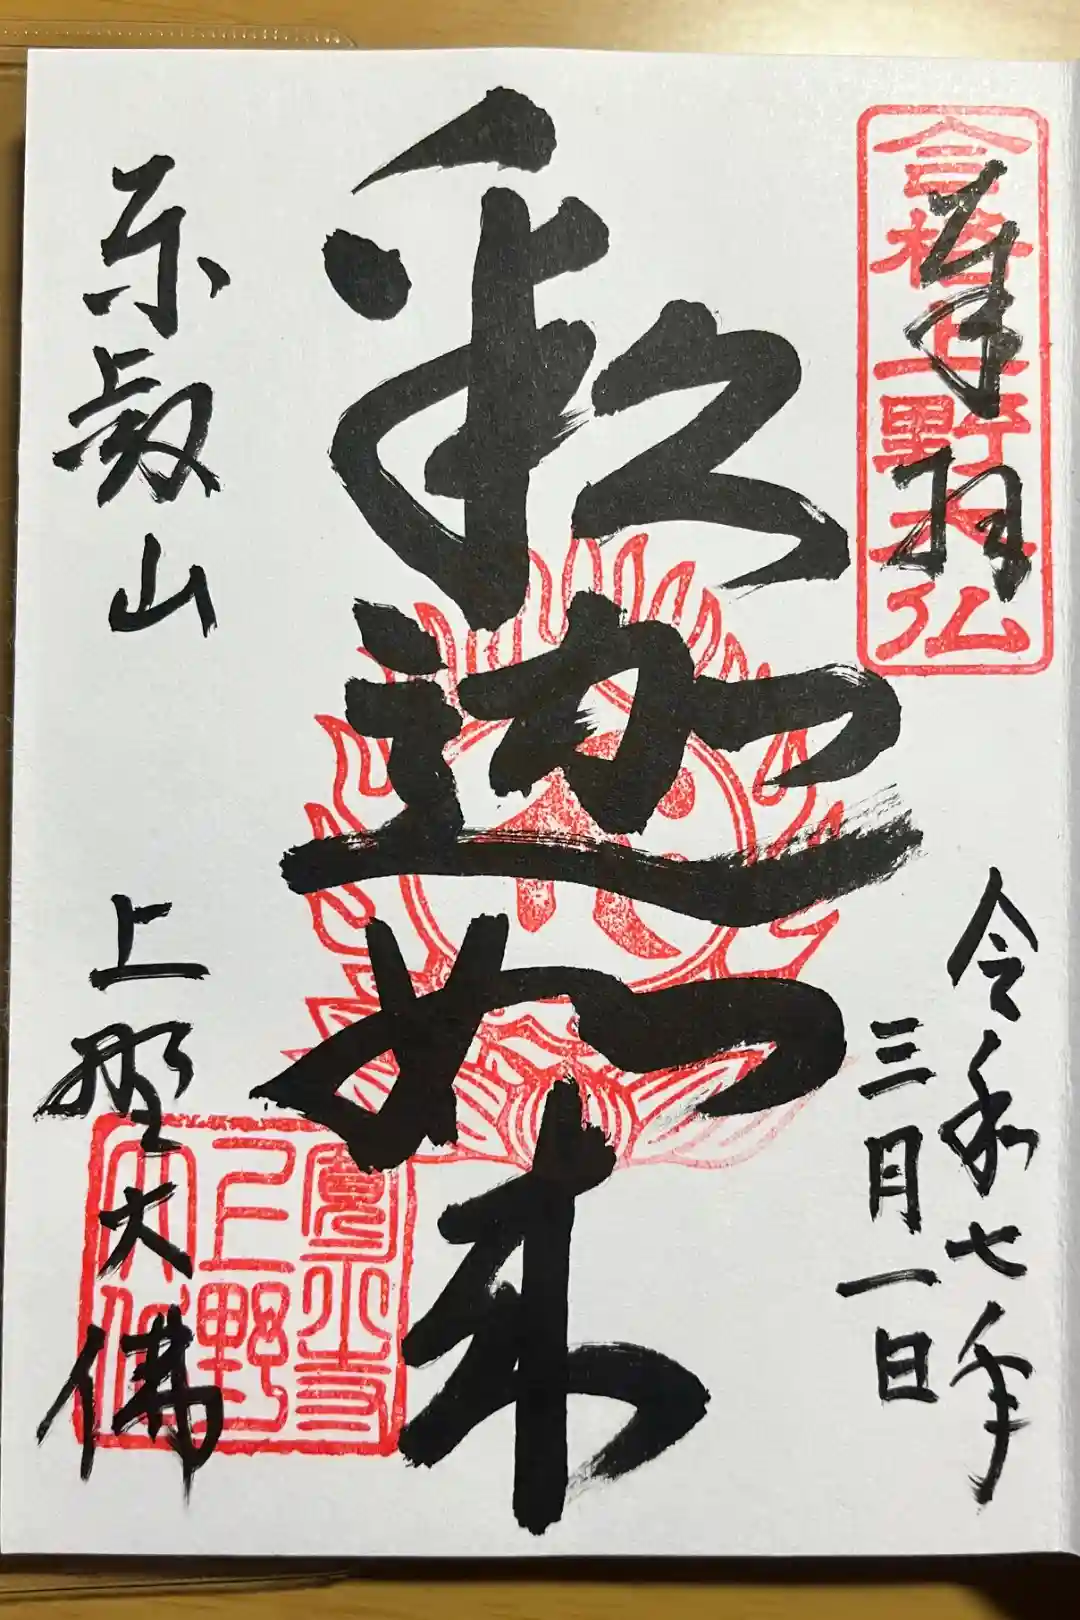 合格上野大仏
奉拝
令和七年
三月一日
釈迦如来
東叡山 上野大佛
寛永寺
上野
大佛